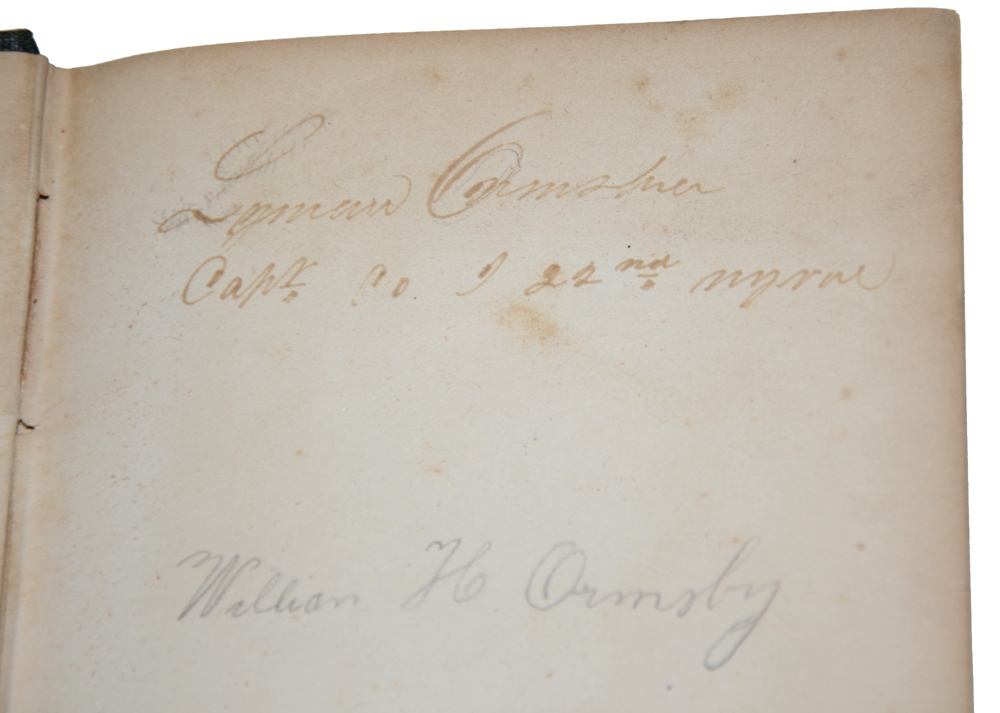 Lyman Ormsbee
Capt. Co I 22nd nyvol
William H Ormsby